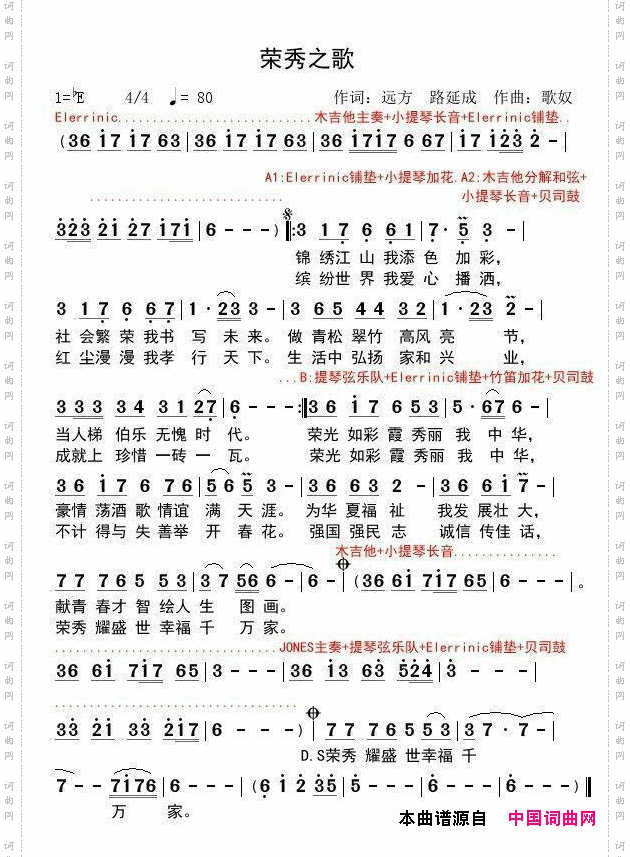 荣秀之歌
1=♭E 4/4 ♩= 80 作词：远方 路延成 作曲：歌奴
Elerrinic............................木吉他主奏+小提琴长音+Elerrinic铺垫..
(36 17 17 63|36 17 17 63|36 1717 6 67|17 1123 2 -|
A1:Elerrinic铺垫+小提琴加花.A2:木吉他分解和弦+
............................ 小提琴长音+贝司鼓
323 21 27 171|6 - - -):3 1 7 6 6 1|7· 5 3 -|
锦 绣江 山 我添 色 加 彩，
缤 纷世 界 我爱 心 播 洒，
3 1 7 6 6 7|1·23 3 -|3 65 44 32|1·23 2 -|
社 会繁 荣 我书 写 未 来。 做 青松 翠竹 高风 亮 节，
红 尘漫 漫 我孝 行 天 下。 生 活中 弘扬 家和 兴 业，
...B:提琴弦乐队+Elerrinic铺垫+竹笛加花+贝司鼓
333 34 31 27|6 - - -:36 17 6 53|5·67 6 -|
当人梯 伯乐 无愧 时 代。 荣光 如彩 霞 秀丽 我 中 华，
成就上 珍惜 一砖 一 瓦。 荣光 如彩 霞 秀丽 我 中 华，
36 16 176 7|56 5 3 -|36 63 2 -|36 61 7 -|
豪情 荡酒 歌 情谊 满 天 涯。 为华 夏福 祉 我发 展壮 大，
不计 得与 失 善举 开 春花。 强国 强民 志 诚信 传佳 话，
木吉他+小提琴长音...............
77 765 53|37 566 -|- 6 -|(36 61 717 65|6 - - -|。
献青 春才 智 绘人 生 图 画。
荣秀 耀盛 世 幸福 千 万 家。
................................JONES主奏+提琴弦乐队+Elerrinic铺垫+贝司鼓
36 61 717 65|3 - - -|36 61 36 63|524 3 - -|
...................................
33 21 33 217|6 - - -)|77 765 53|3 7·7 -|
D.S荣秀 耀盛 世幸福 千
7 - - 7176|6 - - -|(61 23 5|5 - - -|6 - - -)‖
万 家。
本曲谱源自 中国词曲网
词曲网